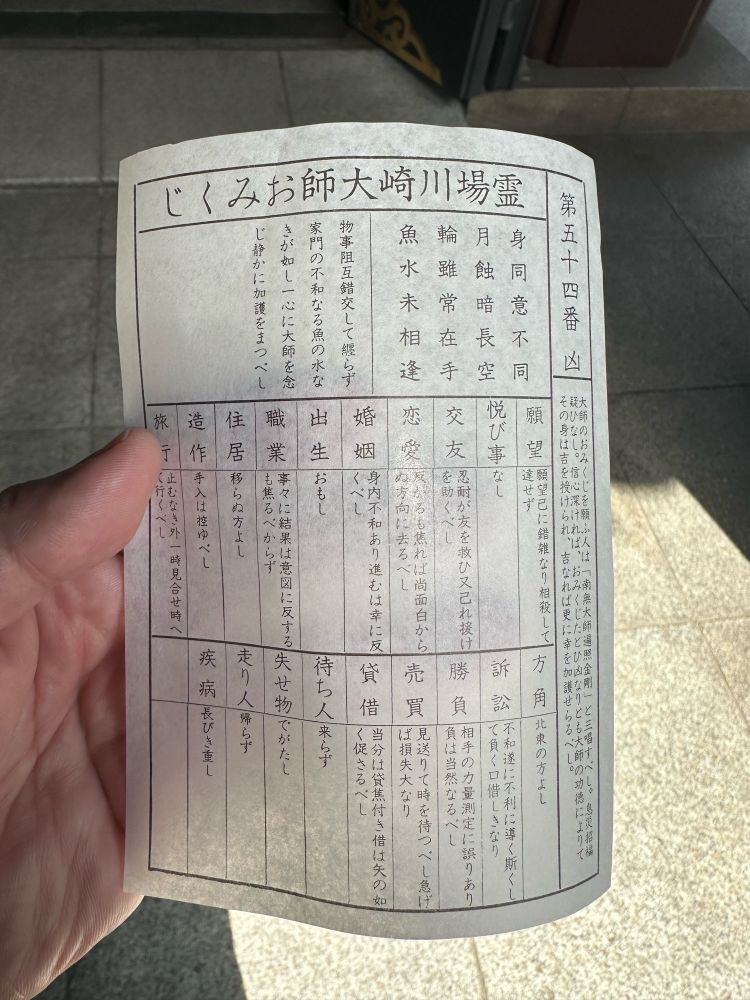 霊場川崎大師おみくじ
第五十四番 凶
大師のおみくじを願ふ人は「南無大師遍照金剛」と三唱すべし。息災招福
疑ひなし。信心深ければ、おみくじたとひ凶なりとも大師の功徳によりて
その身は吉を授けられ、吉なれば更に幸を加護せらるべし。
身同意不同
月蝕暗長空
輪雖常在手
魚水未相逢
物事阻互錯交して纒らず
家門の不和なる魚の水な
きが如し一心に大師を念
じ静かに加護をまつべし
願望
願望己に錯雑なり相殺して
達せず
悦び事
なし
交友
忍耐が友を救ひ又己れ援け
を助くべし
恋愛
反がるも焦れば尚面白から
ぬ方向に去るべし
婚姻
身内不和あり進むは幸に反
くべし
出生
おもし
職業
事々に結果は意図に反する
も焦るべからず
住居
移らぬ方よし
造作
手入は控ゆべし
旅行
止むなき外一時見合せ時へ
て行くべし
方角
北東の方よし
訴訟
不和遂に不利に導く斯くし
て負く口惜しきなり
勝負
相手の力量測定に誤りあり
負は当然なるべし
売買
見送りて時を待つべし急げ
ば損失大なり
貸借
当分は貸焦付き借は矢の如
く促さるべし
待ち人
来らず
失せ物
でがたし
走り人
帰らず
疾病
長びき重し